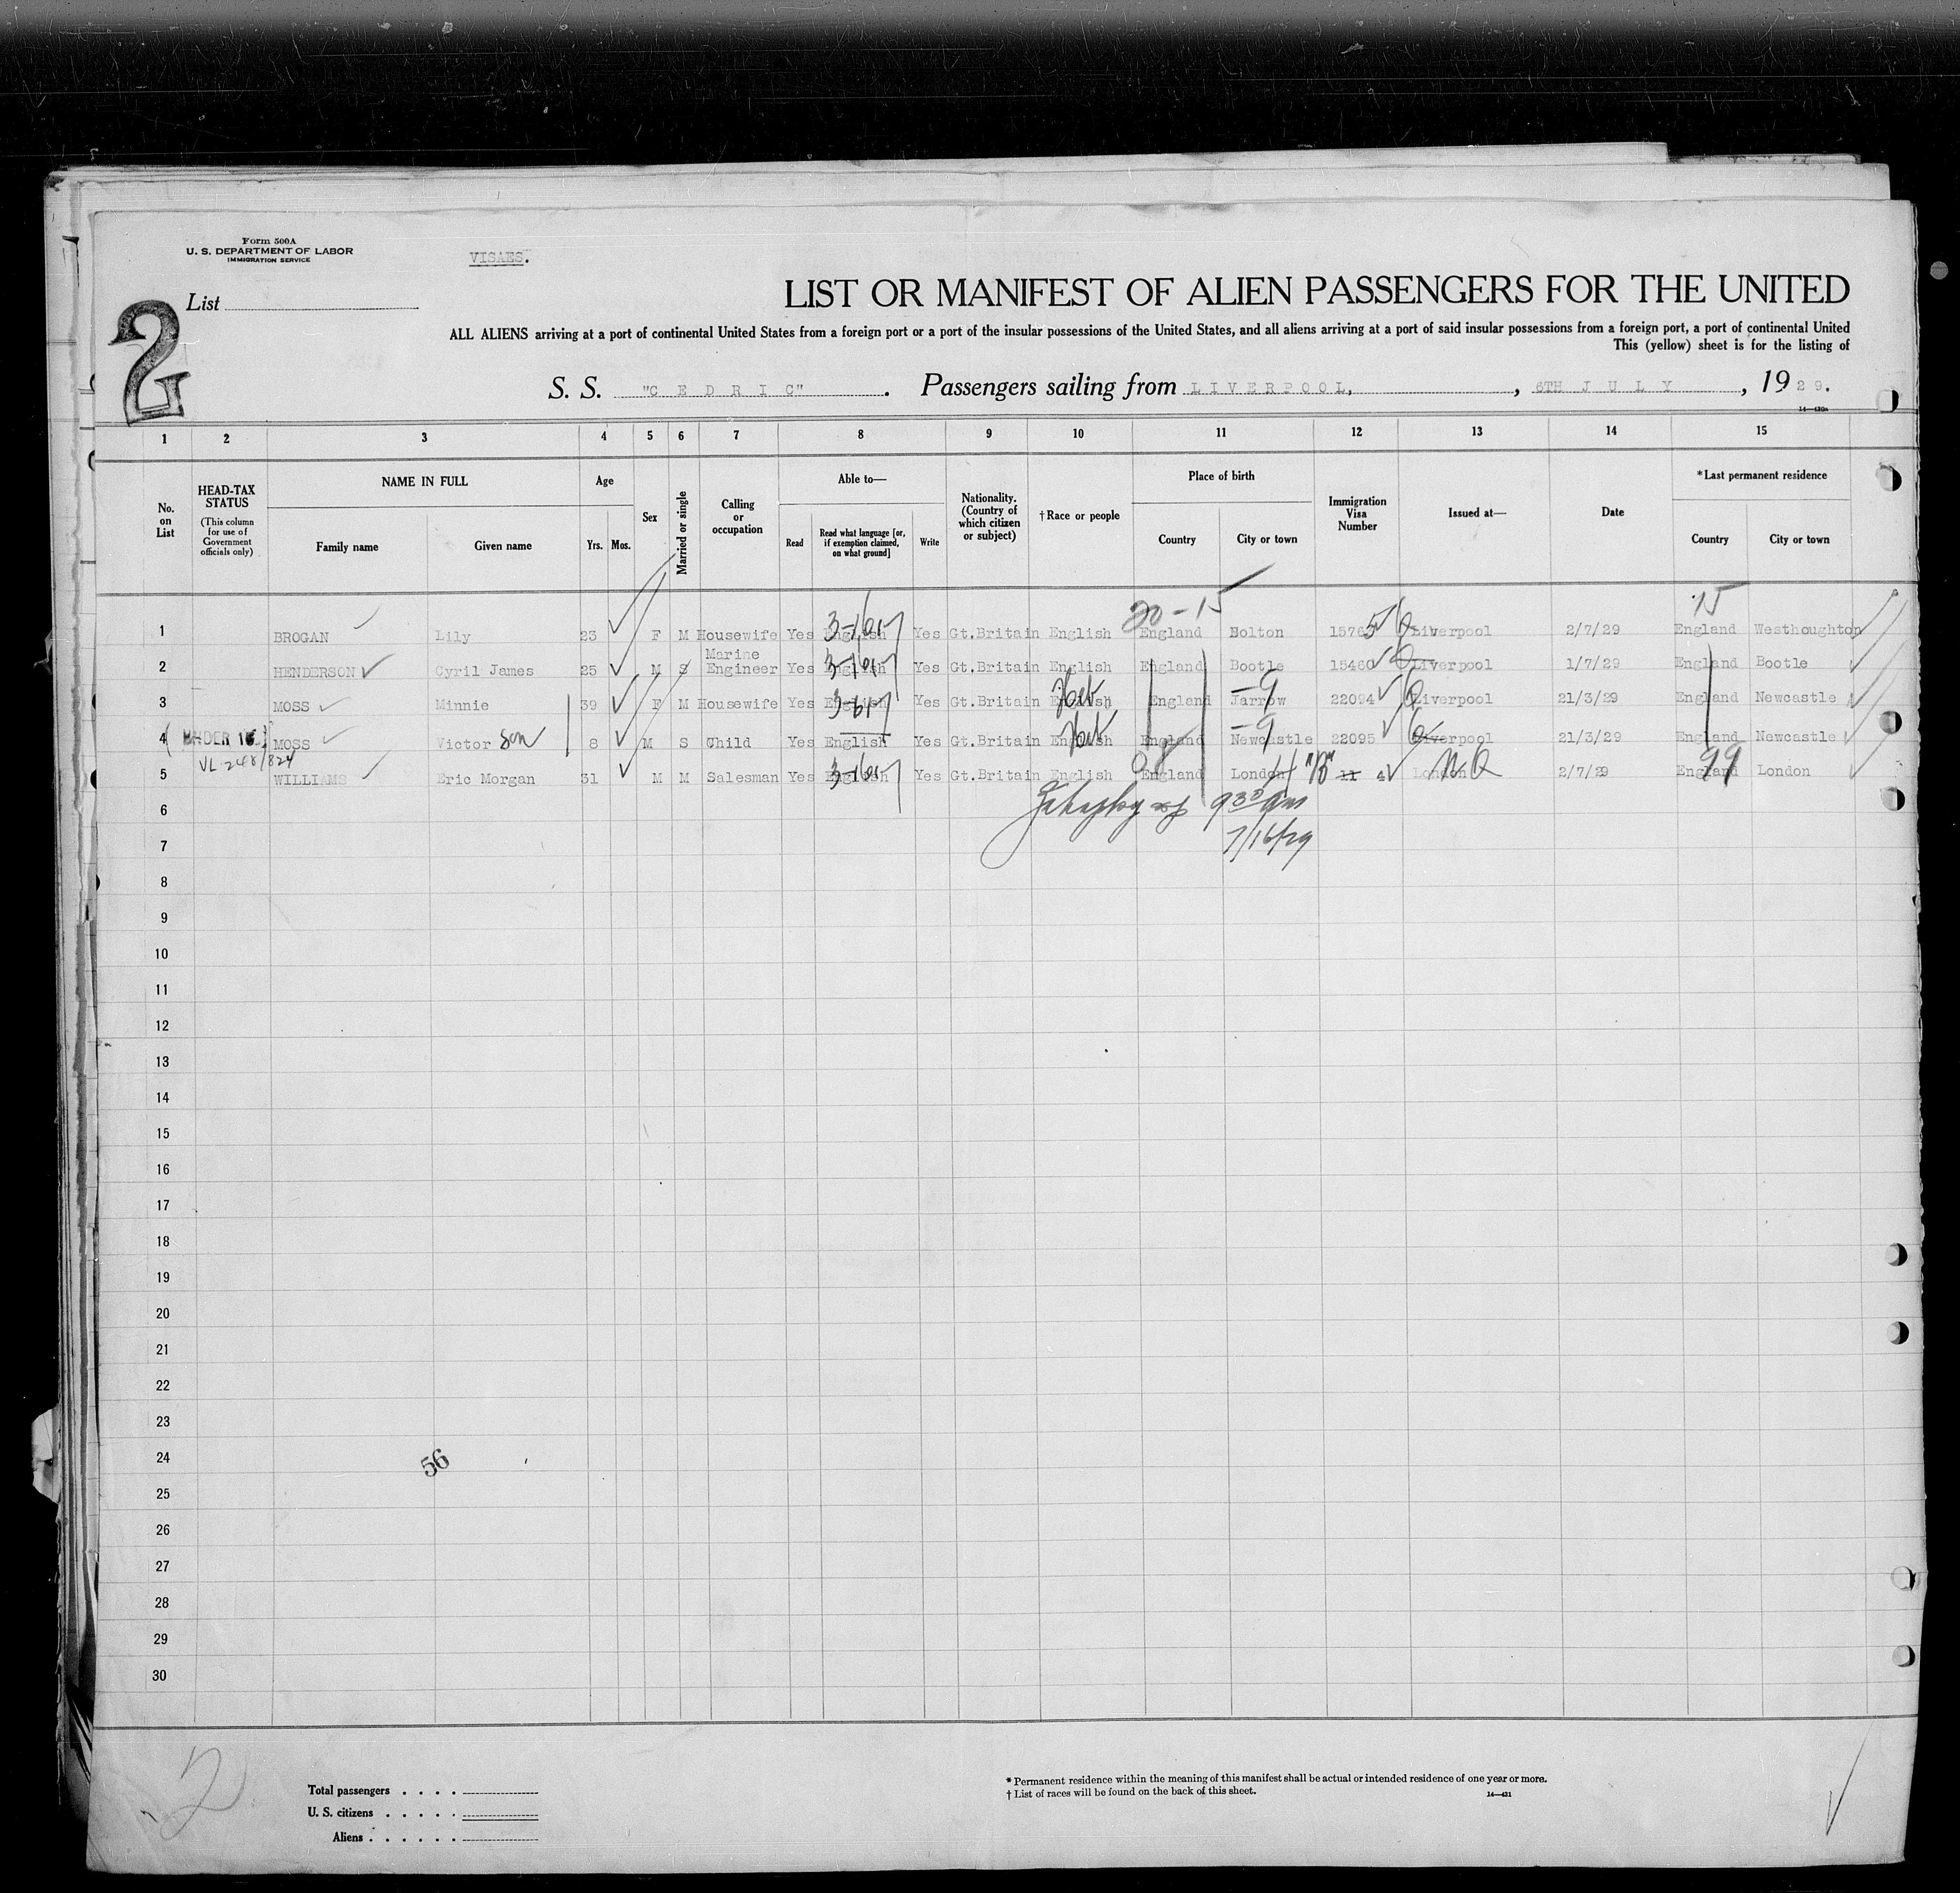 Form 500A
U. S. DEPARTMENT OF LABOR
IMMIGRATION SERVICE
VISAES.
List
2
LIST OR MANIFEST OF ALIEN PASSENGERS FOR THE UNITED
ALL ALIENS arriving at a port of continental United States from a foreign port or a port of the insular possessions of the United States, and all aliens arriving at a port of said insular possessions from a foreign port, a port of continental United
This (yellow) sheet is for the listing of
S. S. "C E D R I C". Passengers sailing from L I V E R P O O L, , 6TH J U L Y , 19 2 9.
1 2 3 4 5 6 7 8 9 10 11 12 13 14 15
No. on List
HEAD-TAX STATUS
(This column for use of Government officials only)
NAME IN FULL
Family name
Given name
Age
Yrs. Mos.
Sex
Married or single
Calling or occupation
Able to—
Read
Read what language [or, if exemption claimed, on what ground]
Write
Nationality. (Country of which citizen or subject)
† Race or people
Place of birth
Country
City or town
Immigration Visa Number
Issued at—
Date
*Last permanent residence
Country
City or town
20-15 15
1 BROGAN Lily 23 F M Housewife Yes English Yes Gt.Britain English England Bolton Liverpool 2/7/29 England Westhoughton
2 HENDERSON Cyril James 25 M S Marine Engineer Yes English Yes Gt.Britain English England Bootle 15460 Liverpool 1/7/29 England Bootle
3 MOSS Minnie 39 F M Housewife Yes English Yes Gt.Britain English Heb England Jarrow -9 22094 Liverpool 21/3/29 England Newcastle
4 UNDER 16 MOSS Victor son 8 M S Child Yes English Yes Gt.Britain English Heb England Newcastle -9 22095 Liverpool 21/3/29 England Newcastle
5 WILLIAMS Eric Morgan 31 M M Salesman Yes English Yes Gt.Britain English England London "B" 11 4 London 2/7/29 England 99 London
6 9 30 am
7 7/16/29
8
9
10
11
12
13
14
15
16
17
18
19
20
21
22
23
24 56
25
26
27
28
29
30
2
Total passengers . . . .
U. S. citizens . . . . .
Aliens . . . . . .
* Permanent residence within the meaning of this manifest shall be actual or intended residence of one year or more.
† List of races will be found on the back of this sheet.
14—421